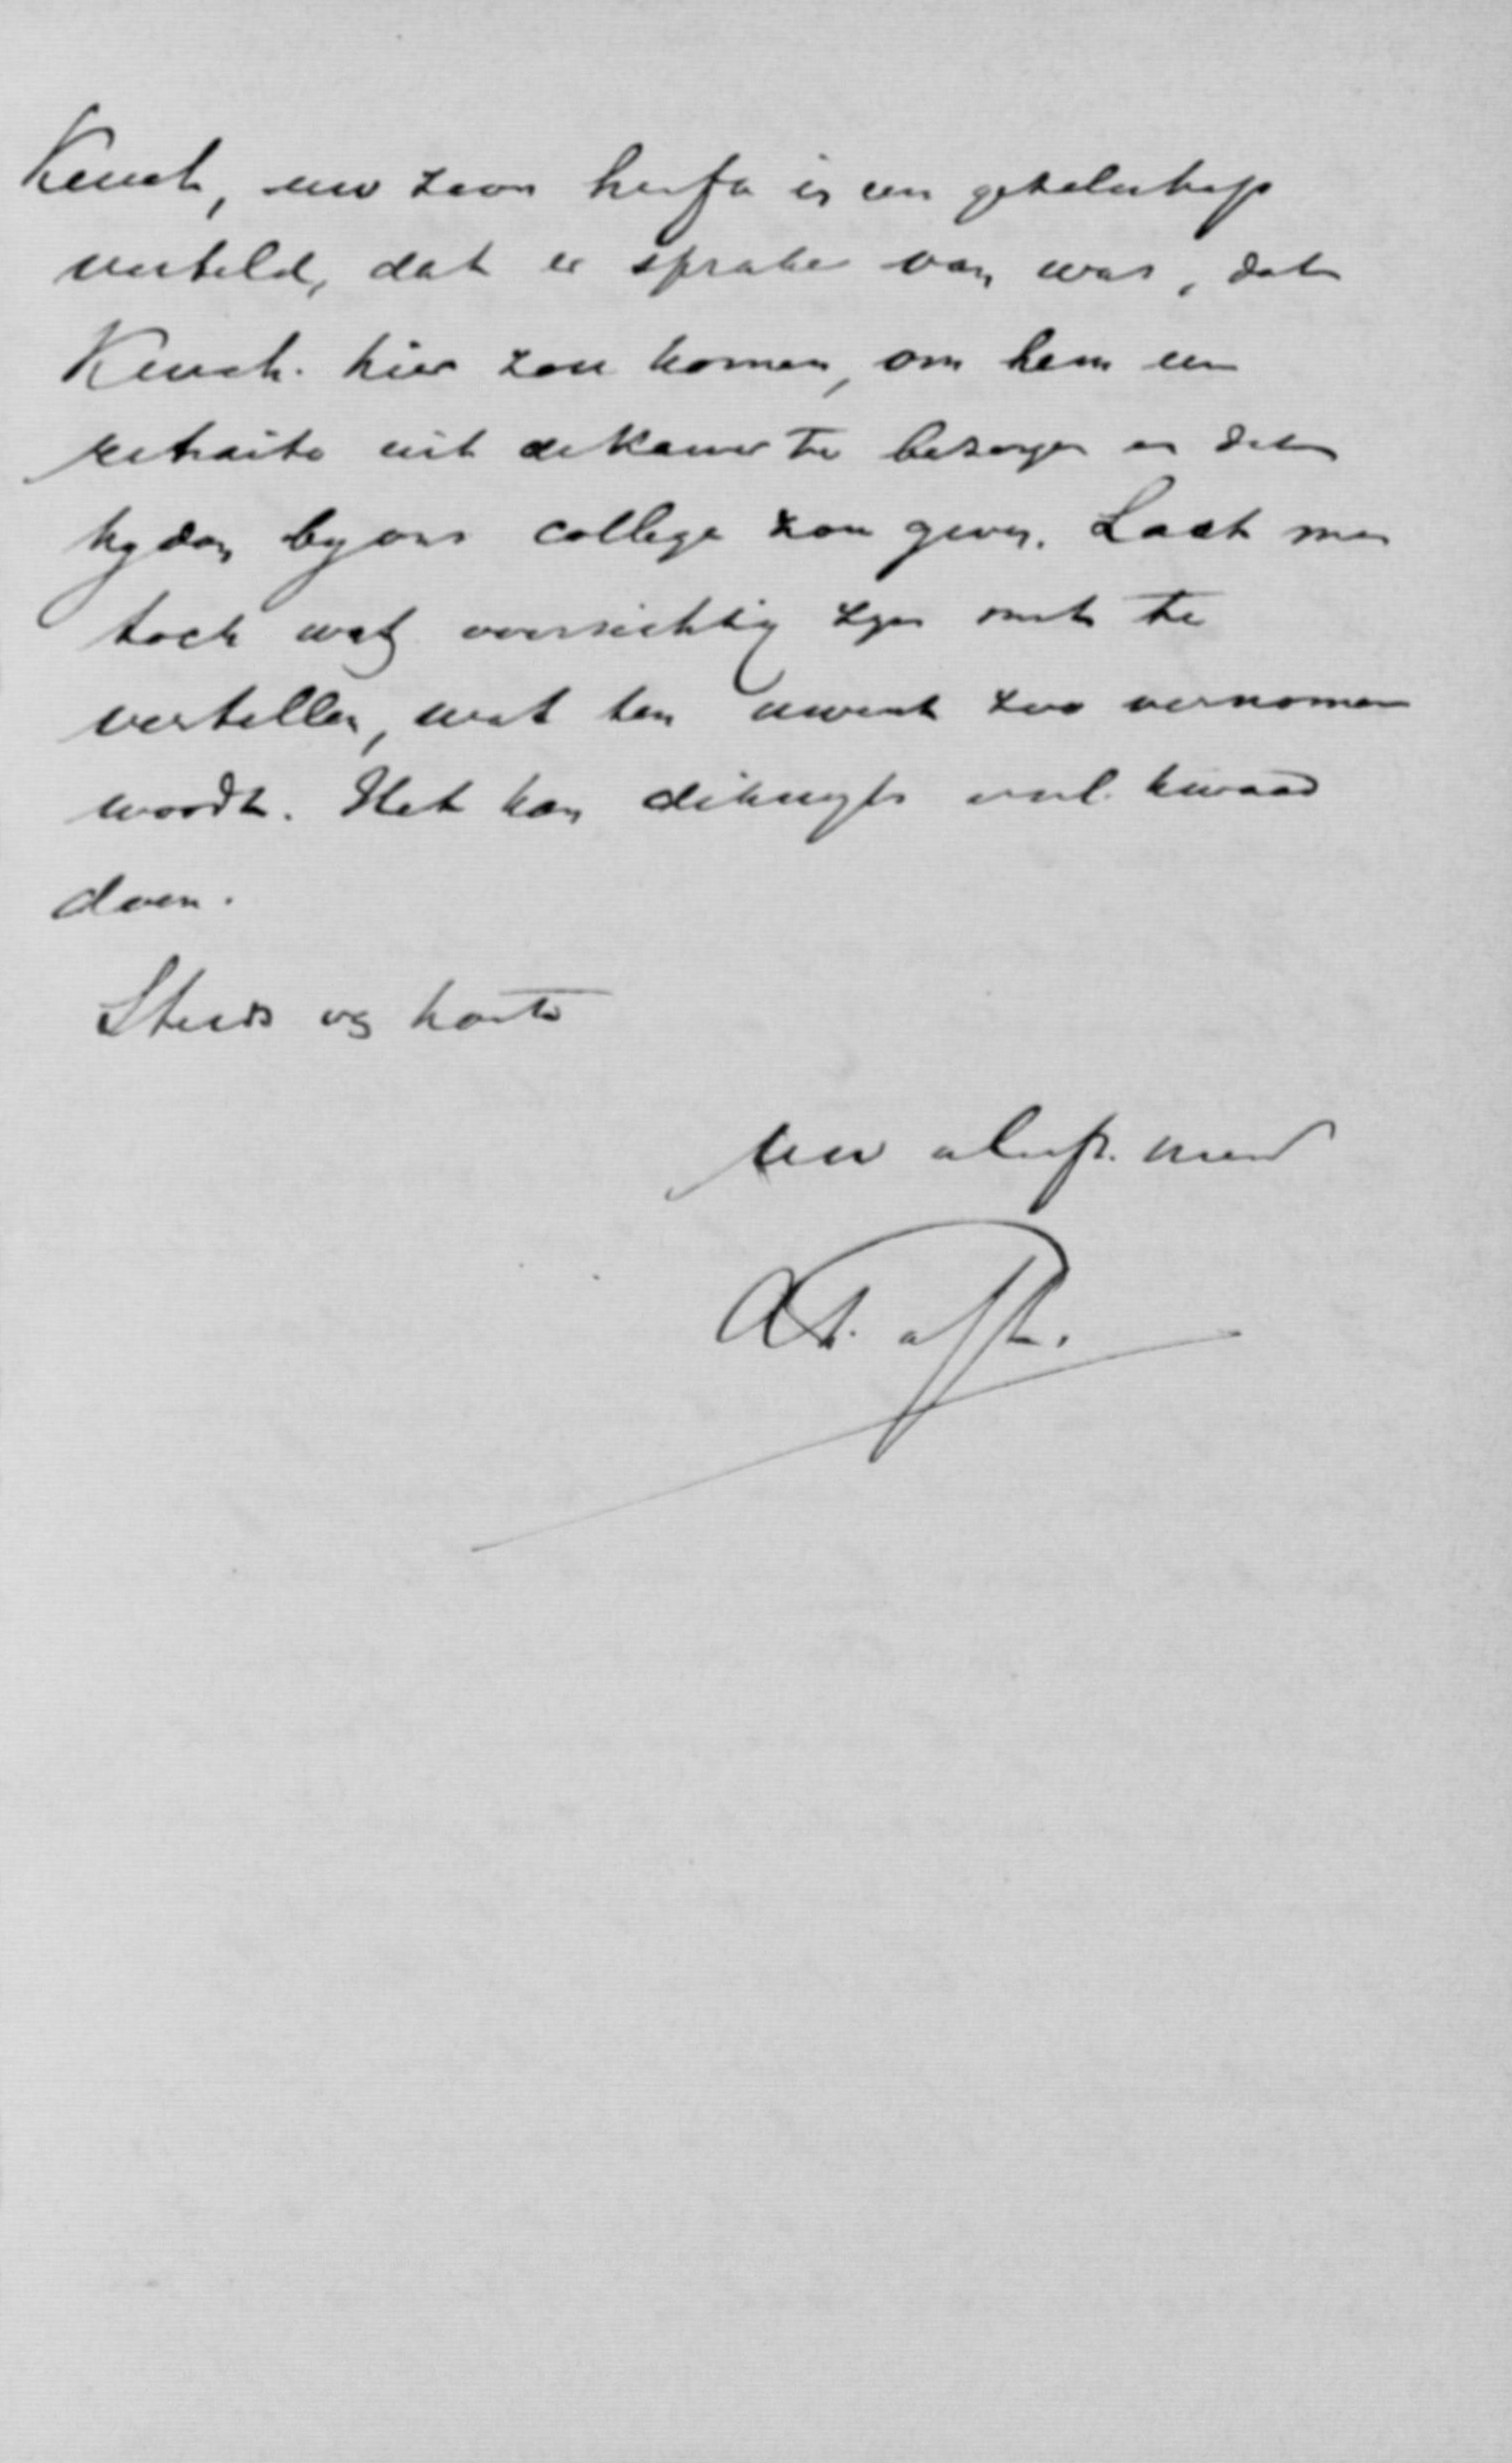 Keuch, uw zoon heeft in een gezelschap
verteld, dat er sprake van was, dat
Keuch. hier zou komen, om hem een
retraite uit de Kamer te bezorgen en dat
hy dan by ons college zou geven. Laat men
toch wat voorzichtig zyn met te
vertellen, wat ten uwent zoo vernomen
wordt. Het kan dikwyls veel kwaad
doen.
Steeds van harte
Uw